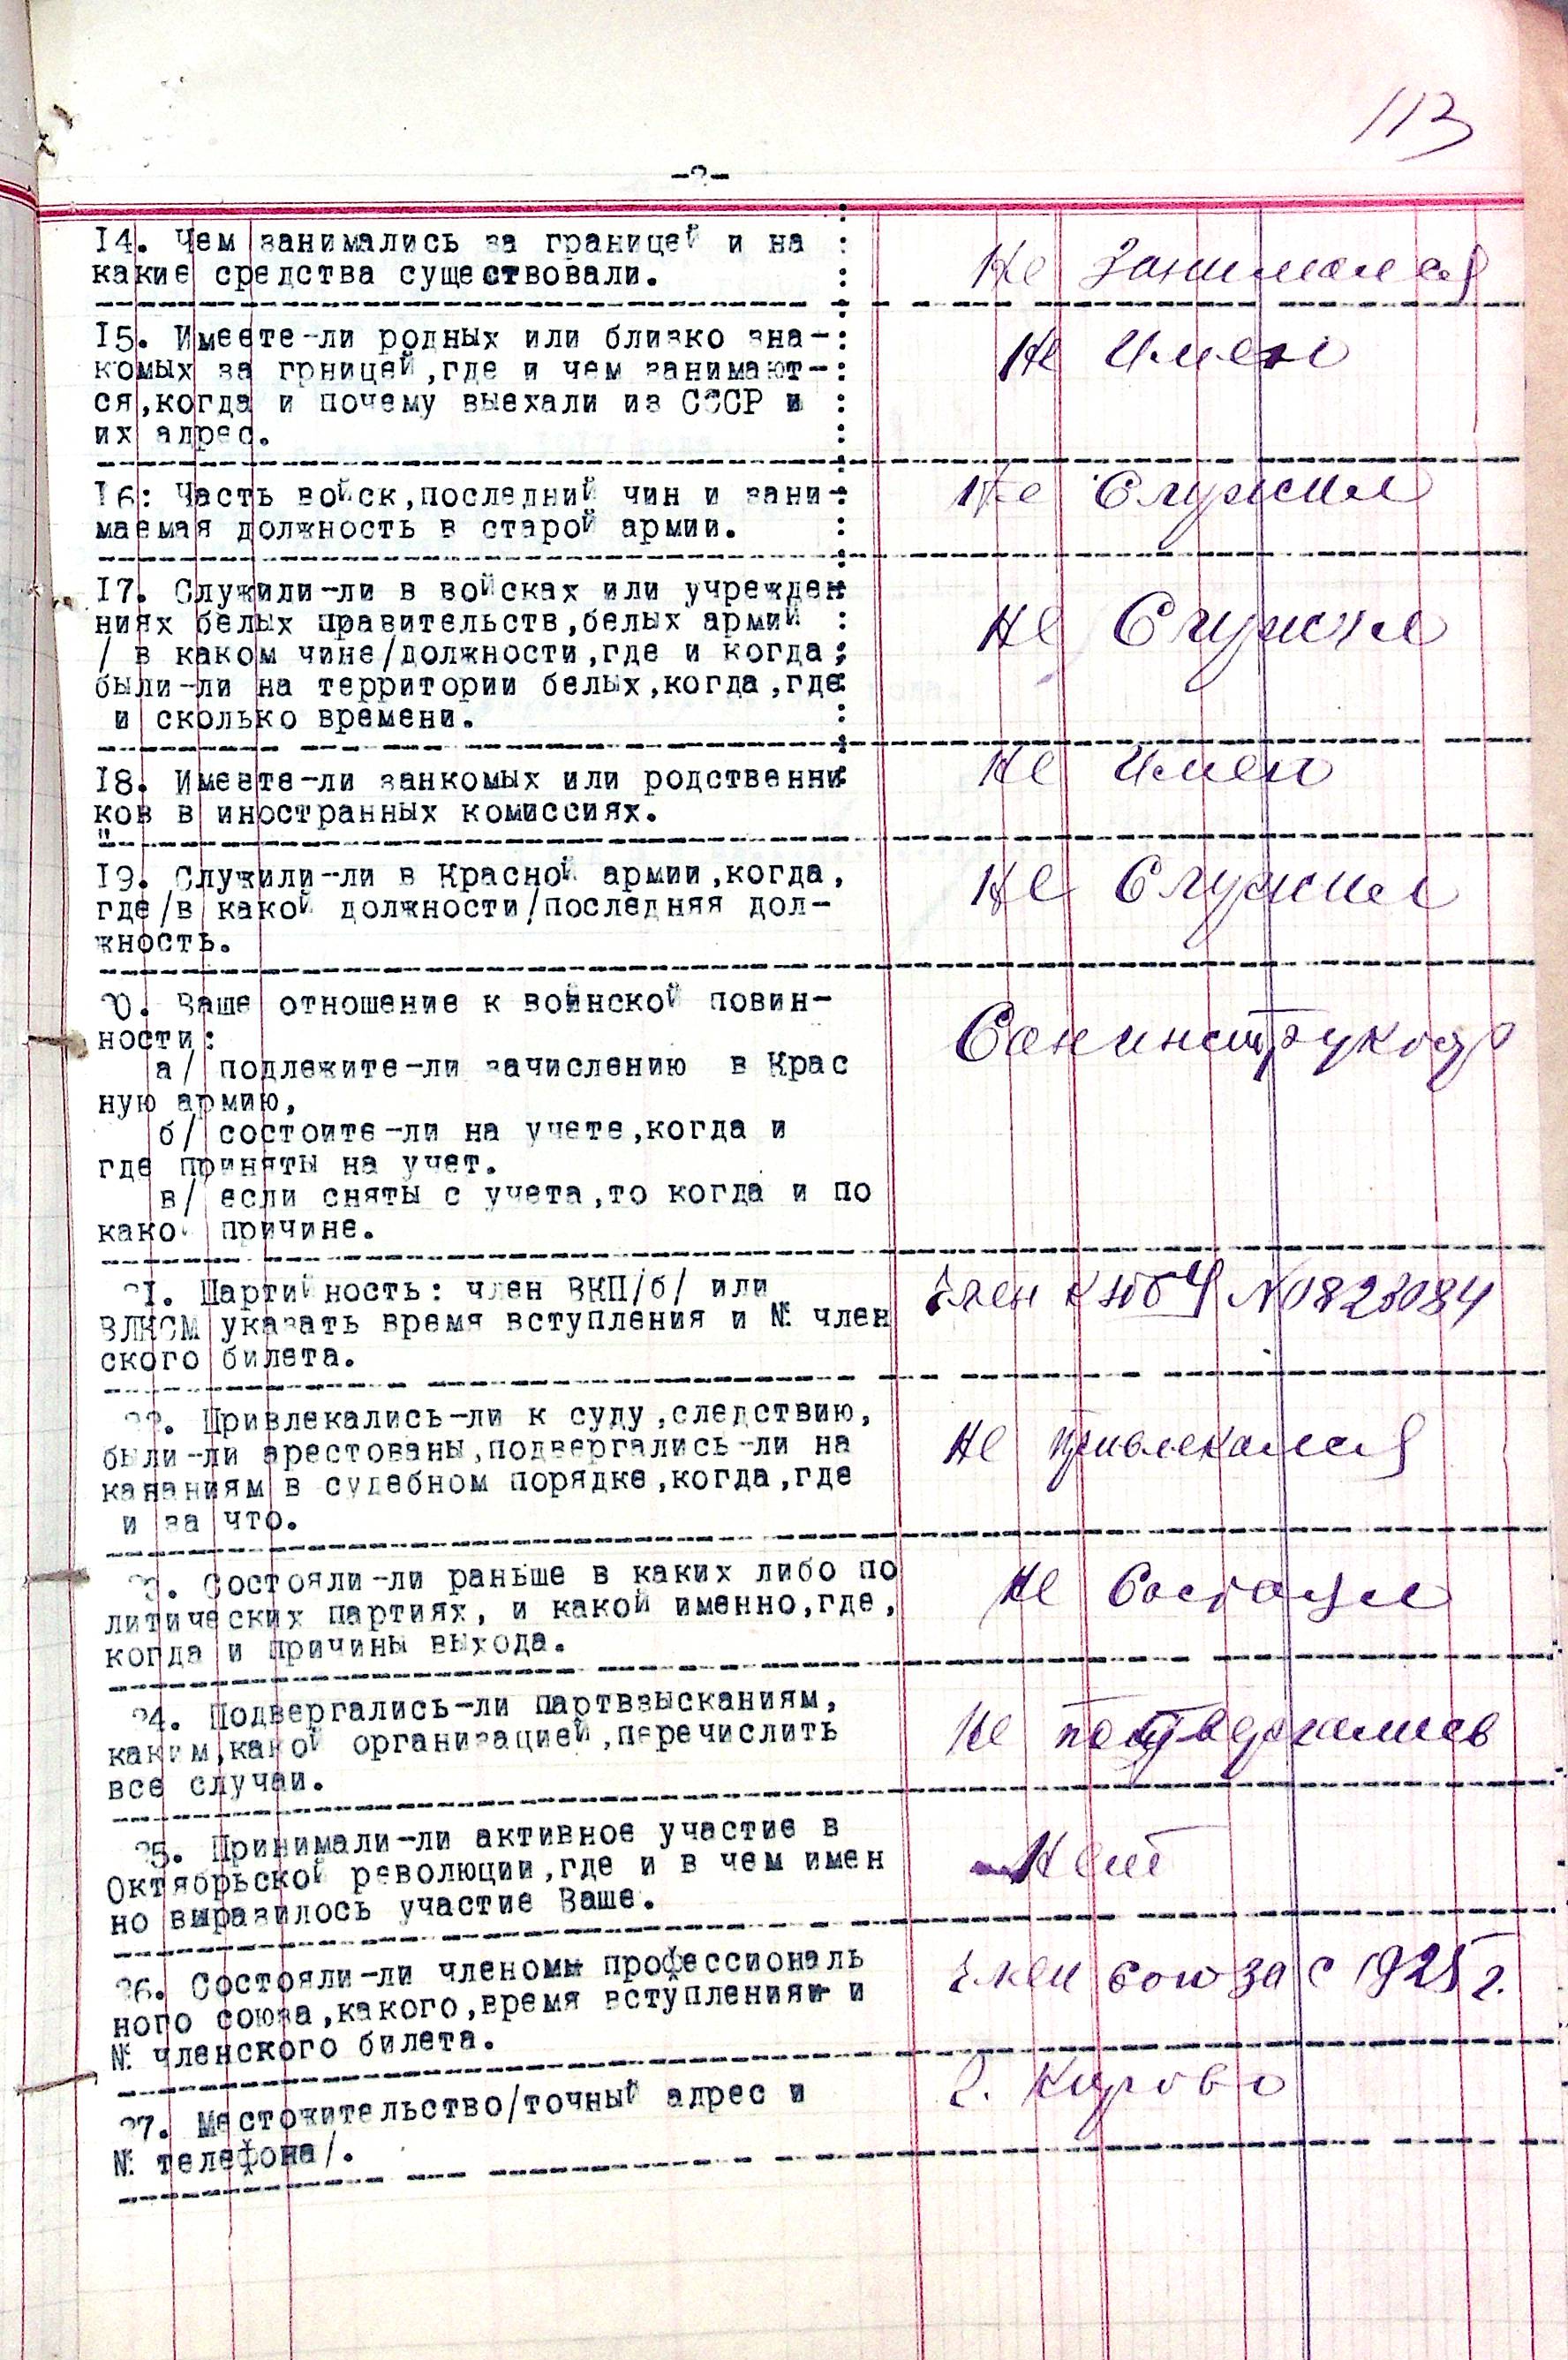 113
-2-
14. Чем занимались за границей и на
какие средства существовали.
Не Занимался
15. Имеете-ли родных или близко зна-
комых за грницей,где и чем занимают-
ся,когда и почему выехали из СССР и
их адрес.
Не Имею
16: Часть войск,последний чин и зани-
маемая должность в старой армии.
Не Служил
17. Служили-ли в войсках или учрежден
ниях белых правительств,белых армий
/ в каком чине/должности,где и когда;
были-ли на территории белых,когда,где
и сколько времени.
Не Служил
18. Имеете-ли занкомых или родственни
ков в иностранных комиссиях.
Не Имею
19. Служили-ли в Красной армии,когда,
где/в какой должности/последняя дол-
жность.
Не Служил
20. Ваше отношение к воинской повин-
ности:
а/ подлежите-ли зачислению в Крас
ную армию,
б/ состоите-ли на учете,когда и
где приняты на учет.
в/ если сняты с учета,то когда и по
какой причине.
Санинструктор
21. Партийность: член ВКП/б/ или
ВЛКСМ указать время вступления и № член
ского билета.
Член N0823084
22. Привлекались-ли к суду,следствию,
были-ли арестованы,подвергались-ли на
казаниям в судебном порядке,когда,где
и за что.
Не привлекался
23. Состояли-ли раньше в каких либо по
литических партиях, и какой именно,где,
когда и причины выхода.
Не Состоял
24. Подвергались-ли партвзысканиям,
каким,какой организацией,перечислить
все случаи.
Не
25. Принимали-ли активное участие в
Октябрьской революции,где и в чем имен
но выразилось участие Ваше.
Нет
26. Состояли-ли членомы профессиональ
ного союза,какого,время вступленияи и
№ членского билета.
Член союза с 1925 г.
27. Местожительство/точный адрес и
№ телефона/.
г. Кирово